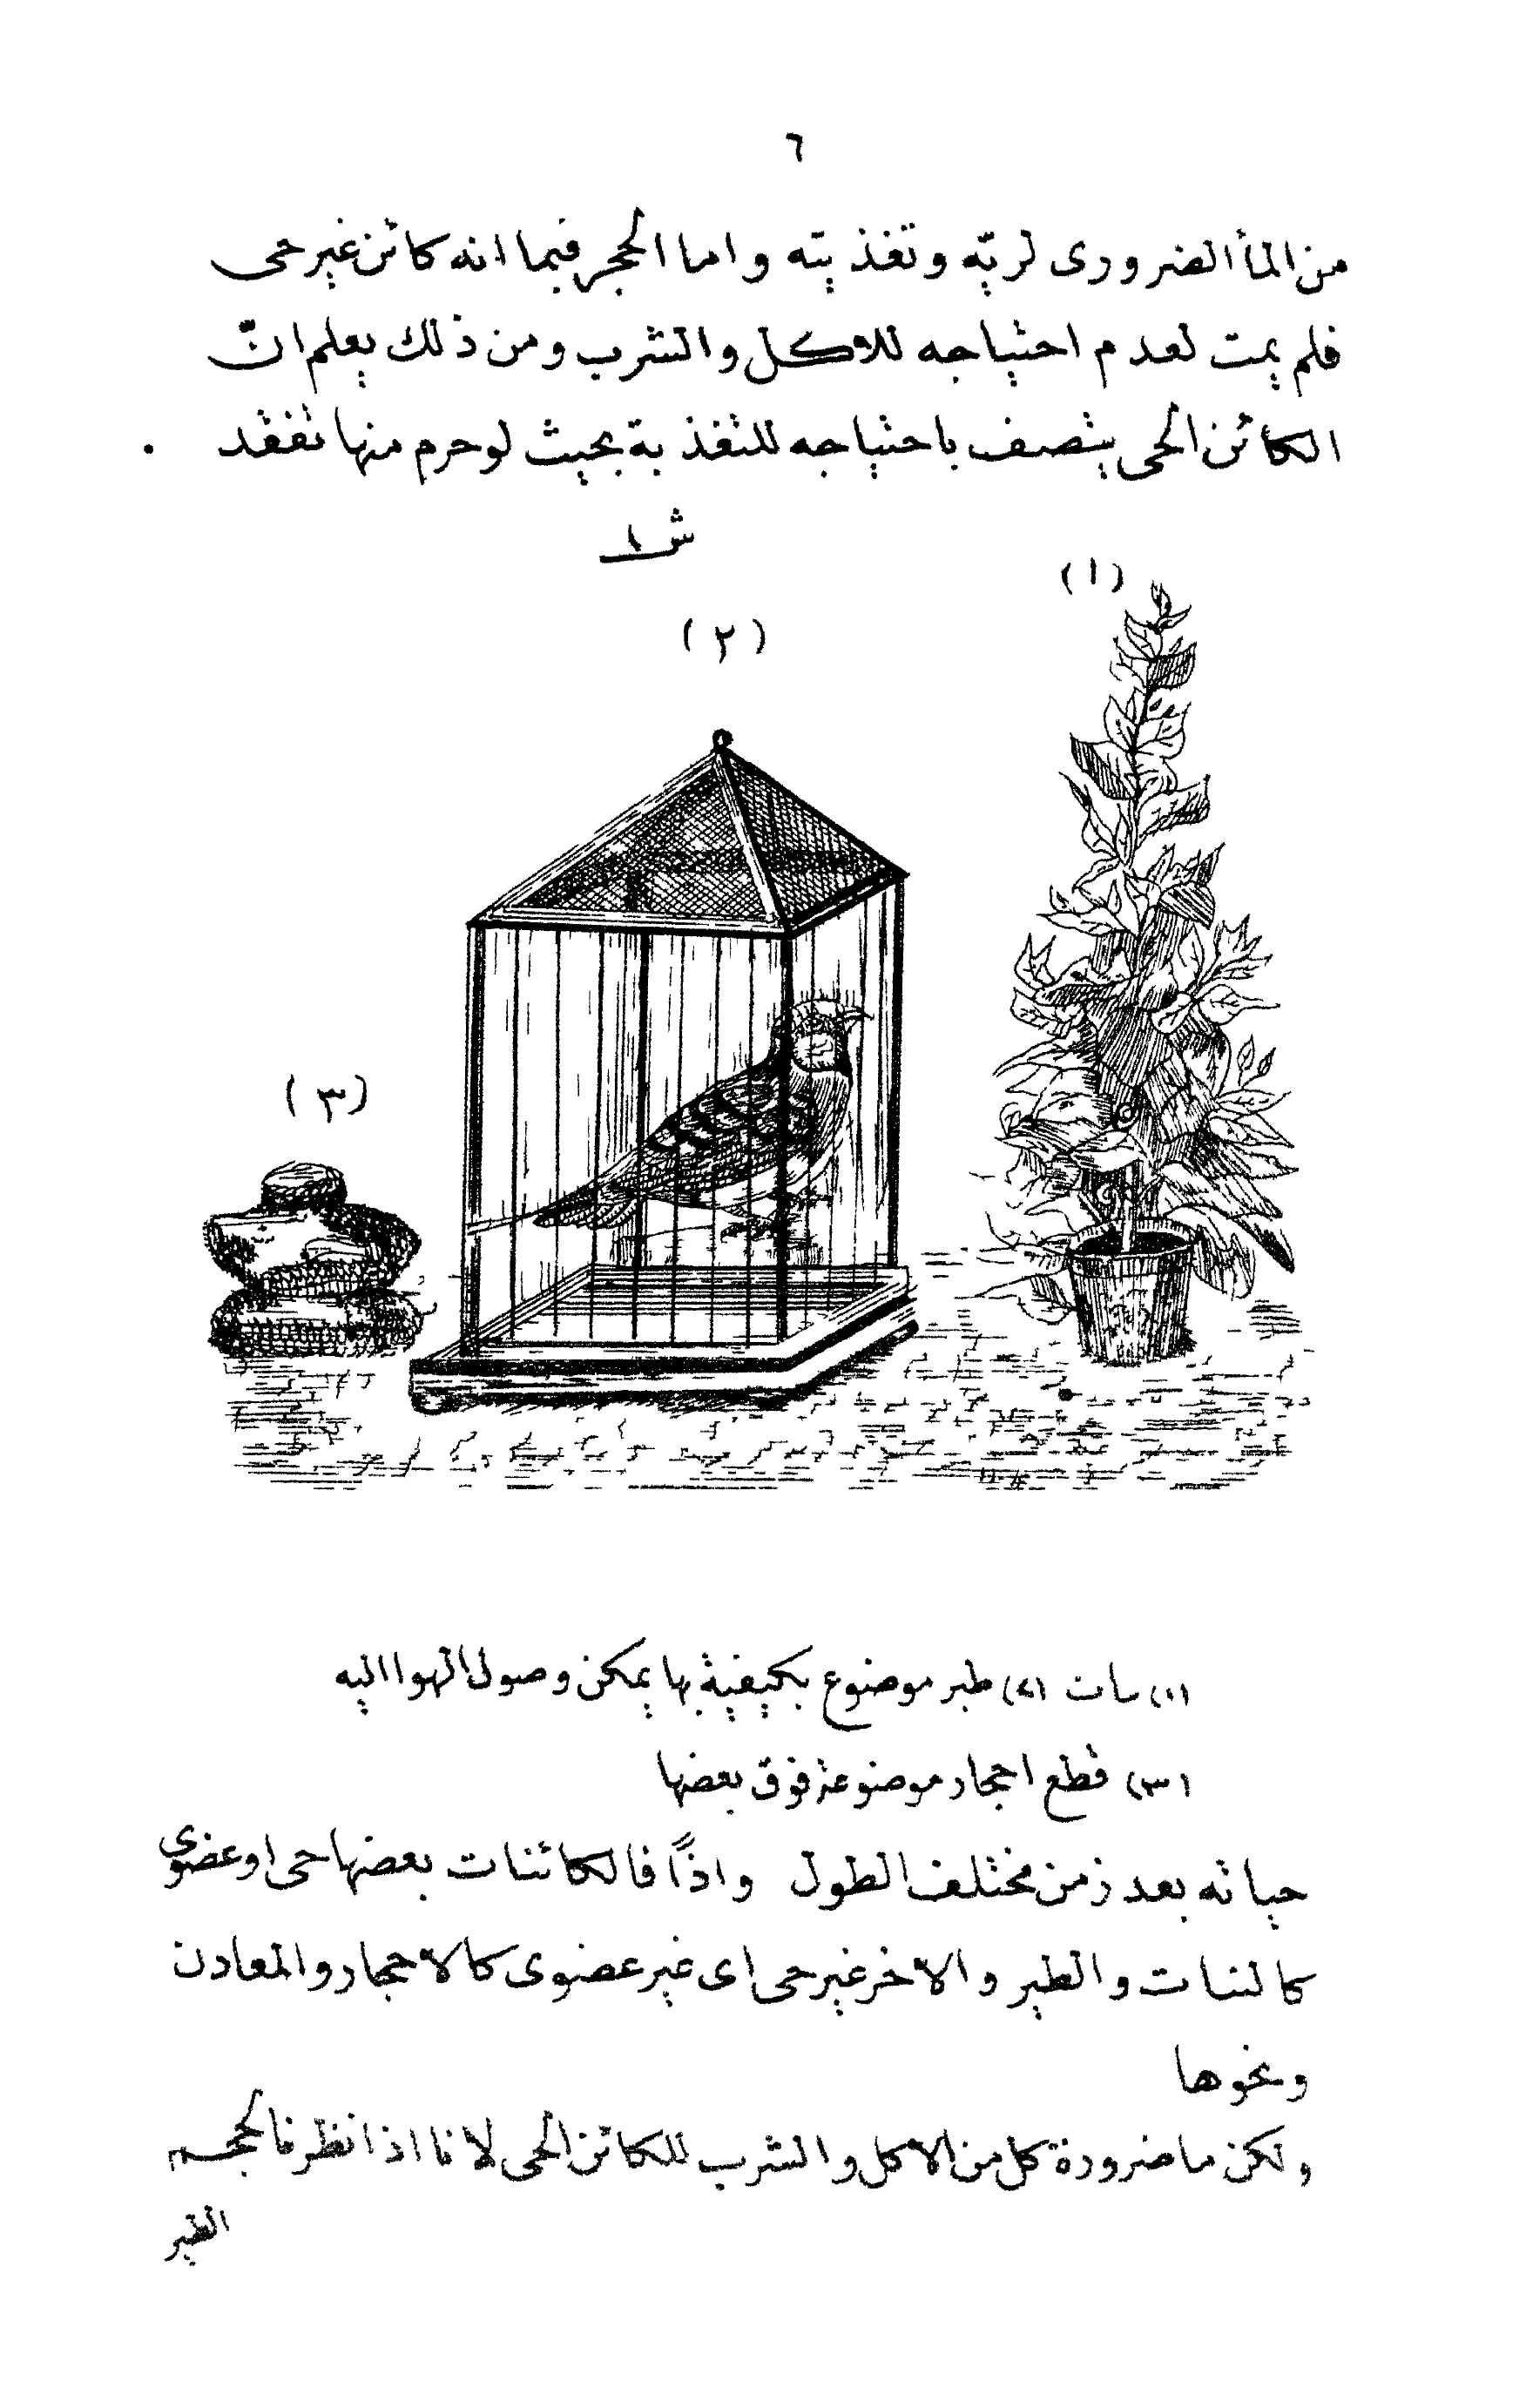 ٦
من المأ الضرورى لريّه وتغذيته واما الحجر فبما انه كائن غير حى
فلم يمت لعدم احتياجه للاكل والشرب ومن ذلك يعلم انّ
الكائن الحى يتصف باحتياجه للتغذية بحيث لو حرم منها تفقد
ش ١
(١)
(٢)
(٣)
(١) نبات (٢) طير موضوع بكيفية بها يمكن وصول الهوا اليه
(٣) قطع احجار موضوعة فوق بعضها
حياته بعد زمن مختلف الطول واذًا فالكائنات بعضها حى اوعضوى
كالنبات والطير والاخر غير حى اى غير عضوى كالاحجار والمعادن
ونحوها
ولكن ما ضرورة كل من الاكل والشرب للكائن الحى لانا اذا نظرنا لحجم
الطير